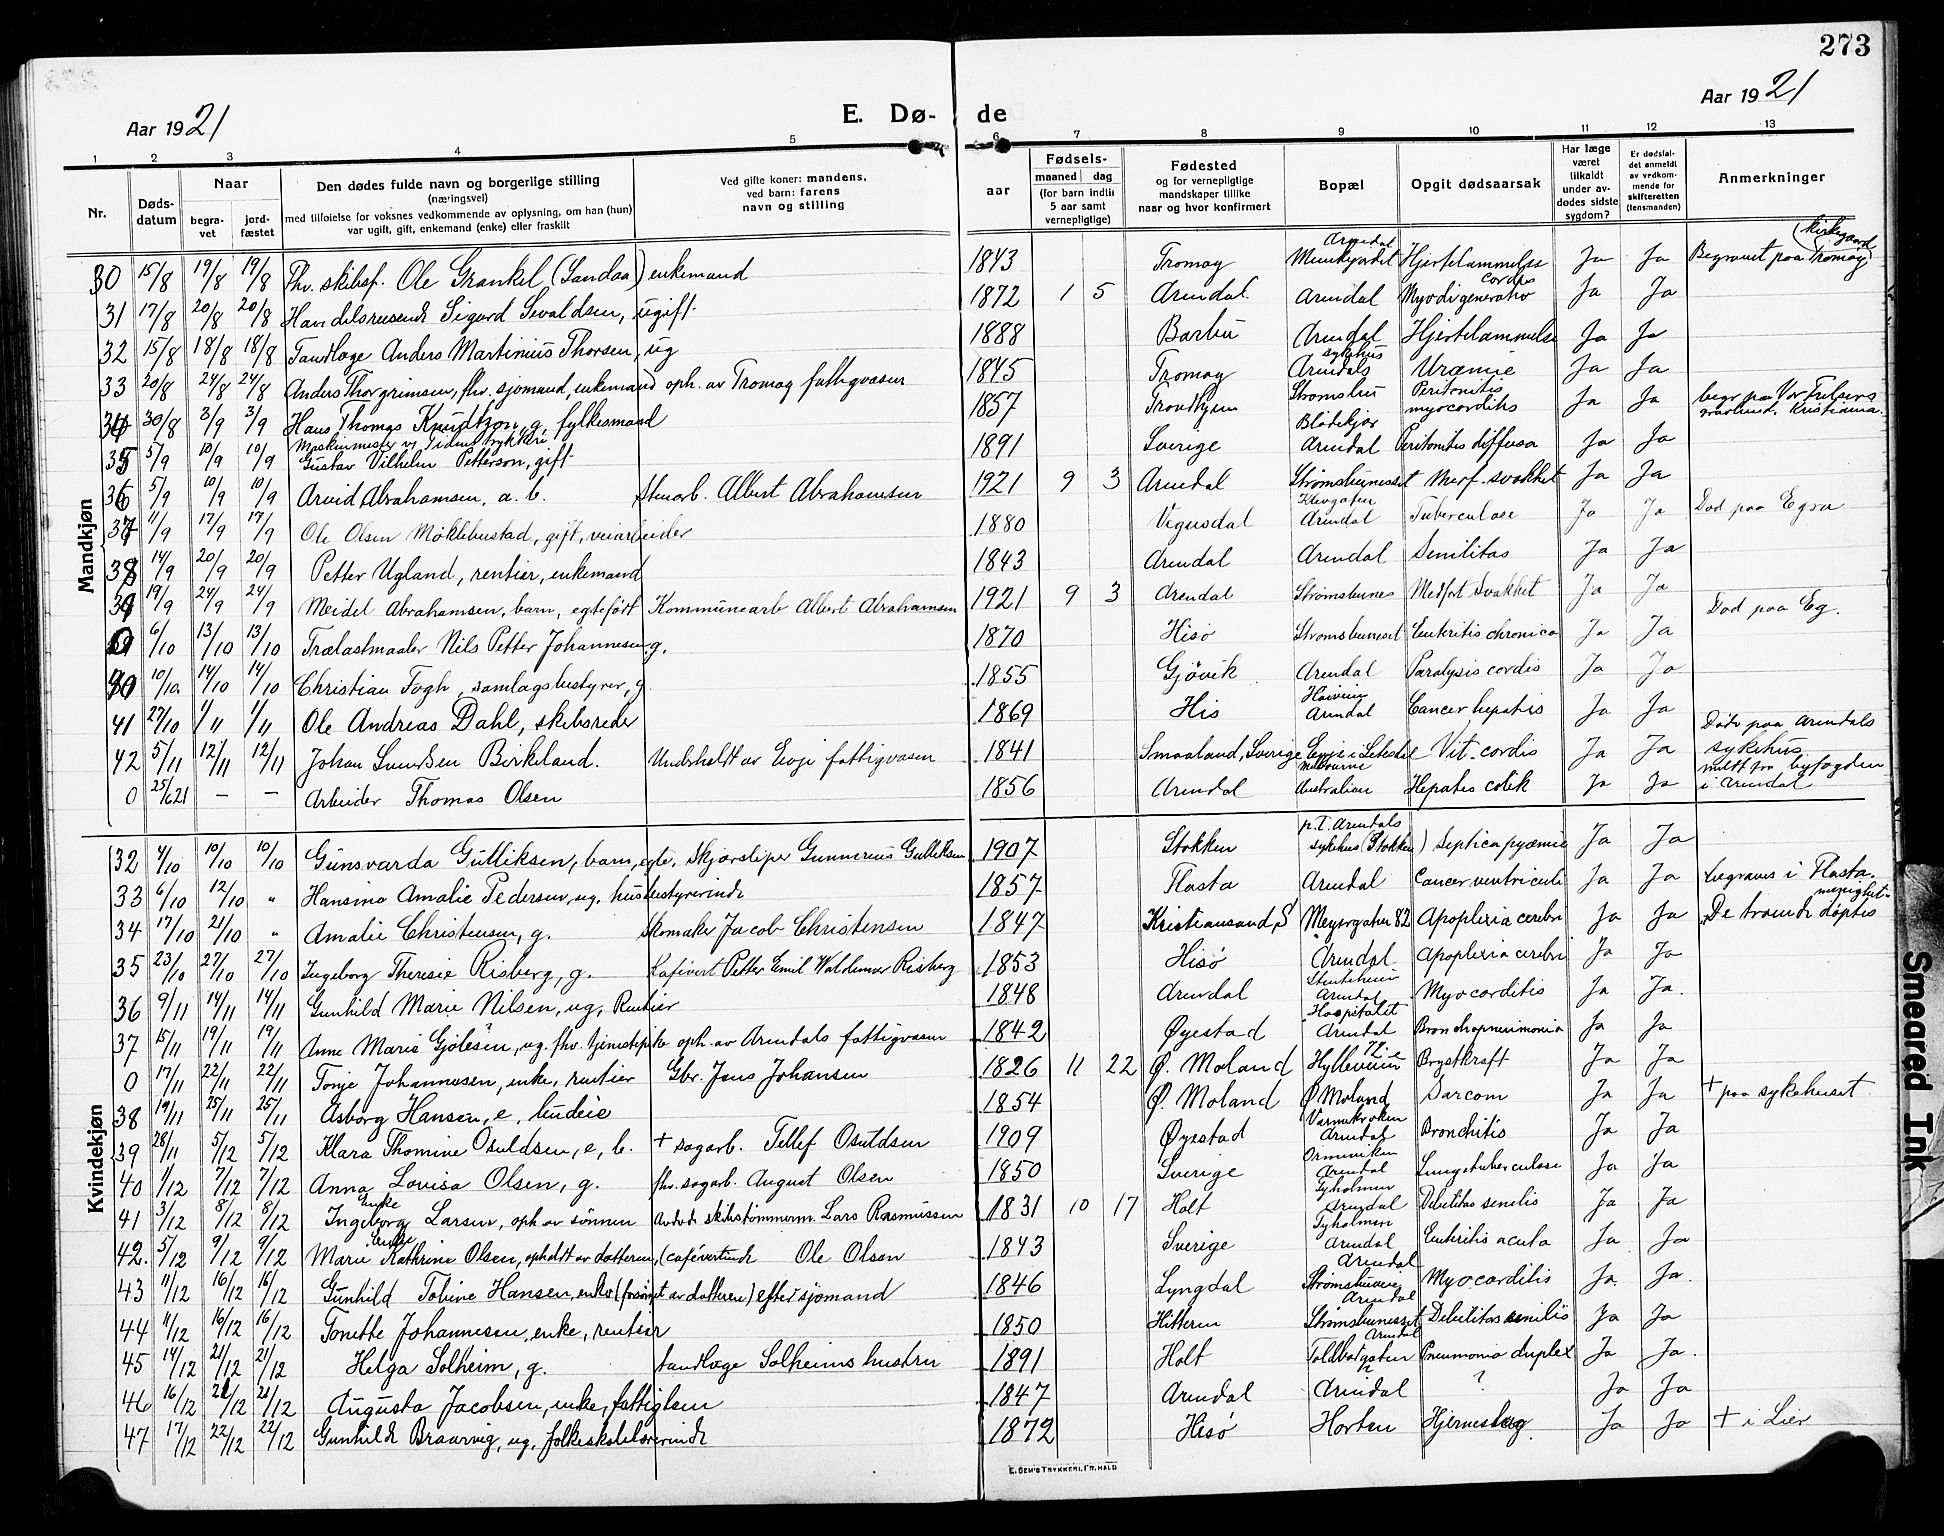 273
Aar 1921
E. Dø- de
Aar 1921
1 2 3 4 5 6 7 8 9 10 11 12 13
Nr.
Døds-datum
Naar
begra-vet
jord-fæstet
Den dødes fulde navn og borgerlige stilling
(næringsvei)
med tilføielse for voksnes vedkommende av oplysning, om han (hun)
var ugift, gift, enkemand (enke) eller fraskilt
Ved gifte koner: mandens,
ved barn: farens
navn og stilling
aar
Fødsels-
maaned dag
(for barn indtil
5 aar samt
vernepligtige)
Fødested
og for vernepligtige
mandskaper tillike
naar og hvor konfirmert
Bopæl
Opgit dødsaarsak
Har læge
været
tilkaldt
under av-
dødes sidste
sygdom?
Er dødsfal-
det anmeldt
av vedkom-
mende for
skifteretten
(lensmanden)
Anmerkninger
Mandkjøn
30 15/8 19/8 19/8 Fhv. skibsf. Ole Grankel (Sandaa) enkemand 1843 Tromøy Arendal Hjertelammelse Ja Ja Begravet paa Tromøy kirkegaard
31 17/8 20/8 20/8 Handelsreisende Sigurd Sevaldsen, ugift 1872 1 5 Arendal Arendal Myodigeneratio cordis Ja Ja
32 15/8 18/8 18/8 Tandlæge Anders Martinius Thorsen, ug 1888 Barbu Arendal Hjertelammelse Ja Ja
33 20/8 24/8 24/8 Anders Thorgrimsen, fhv. sjømand, enkemand oph. av Tromøy fattigvæsen 1845 Tromøy Arendals sykehus Uræmie Ja Ja
34 30/8 3/9 3/9 Hans Thomas Knudtzon, g, fylkesmand 1857 Trondhjem Strømsbu Peritonitis myocarditis Ja Ja begr. paa Vor Frelsers gravlund, Kristiania.
35 5/9 10/9 10/9 Maskinmester v/ Tidens trykkeri Gustav Vilhelm Petterson, gift 1891 Sverige Blødekjær Arendal Peritonitis diffusa Ja Ja
36 5/9 10/9 10/9 Arvid Abrahamsen, a. b. Stenarb. Albert Abrahamsen 1921 9 3 Arendal Strømsbunesset Medf. svakhet Ja Ja
37 11/9 17/9 17/9 Ole Olsen Møklebustad, gift, veiarbeider 1880 Vegusdal Arendal Tuberculose Ja Ja Død paa Egra
38 14/9 20/9 20/9 Petter Ugland, rentier, enkemand 1843 Arendal Arendal Senilitas Ja Ja
39 19/9 24/9 24/9 Meidel Abrahamsen, barn, egtefødt Kommunearb Albert Abrahamsen 1921 9 3 Arendal Strømsbunes Medfødt svakhet Ja Ja
0 6/10 13/10 13/10 Trælastmaaler Nils Petter Johannesen g. 1870 Hisø Strømsbuneset Enteritis chronica Ja Ja Død paa Eg.
40 10/10 14/10 14/10 Christian Fogh, samlagsbestyrer, g 1855 Gjøvik Arendal Paralysis cordis Ja Ja
41 27/10 1/11 1/11 Ole Andreas Dahl, skibsreder 1869 His Arendal Cancer hepatis Ja Ja
42 5/11 12/11 12/11 Johan Svendsen Birkeland. Underholdt av Evje fattigvæsen 1841 Smaaland, Sverige Evje i Setesdal Vit. cordis Ja Ja Døde paa Arendals sykehus
0 25/6 21 – – Arbeider Thomas Olsen 1856 Arendal Melbourne Australien Hepatis colik Ja Ja meldt fra byfogden i Arendal
Kvindekjøn
32 4/10 10/10 10/10 Gunsvarda Gulliksen, barn, egte. Skjærsliper Gunnerius Gulliksen 1907 Stokken p.t. Arendals sykehus (Stokken) Septicopyæmie Ja Ja
33 6/10 12/10 " Hansine Amalie Pedersen, ug. husbestyrerinde 1857 Flosta Arendal Cancer ventriculi Ja Ja begraves i Flosta.
34 17/10 21/10 " Amalie Christensen, g. Skomaker Jacob Christensen 1847 Kristiansand, S Meyergaten 82 Apoplexia cerebri Ja Ja De troende døptes menighet
35 23/10 27/10 27/10 Ingeborg Theresie Risberg, g. Kafévert Petter Emil Waldemar Risberg 1853 Hisø Arendal Apoplexia cerebri Ja Ja
36 9/11 14/11 14/11 Gunhild Marie Nilsen, ug, Rentier 1848 Arendal Arendal Myocarditis Ja Ja.
37 15/11 19/11 19/11 Anne Marie Gjølesen, ug. fhv. tjenestepike oph. av Arendals fattigvæsen 1842 Øyestad Hospitalet Arendal Bronchopneumonia Ja Ja
0 17/11 22/11 22/11 Tonje Johannesen, enke, rentier Gbr. Jens Johansen 1826 11 22 Ø. Moland Hylleveien Brystkræft Ja Ja
38 19/11 25/11 25/11 Asborg Hansen, e, budeie 1854 Ø. Moland Ø Moland Sarcom Ja Ja + paa sykehuset
39 28/11 5/12 5/12 Klara Thomine Osuldsen, e, b. + sagarb. Tellef Osuldsen 1909 Øyestad Varmekroken Arendal Bronchitis Ja Ja
40 1/12 7/12 7/12 Anna Lovisa Olsen, g. fhv. sagarb. August Olsen 1850 Sverige Ormeviken Arendal Lungetuberculose Ja Ja
41 3/12 8/12 8/12 Enke Ingeborg Larsen, oph av sønnen Avdøde skibstømmerm. Lars Rasmussen 1831 10 17 Holt Tyholmen Arendal Debilitas senilis Ja Ja
42. 5/12 9/12 9/12 Enke Marie Kathrine Olsen, opholdt av datteren, (cafévertinde Ole Olson 1843 Sverige Tyholmen Arendal Enteritis acuta Ja Ja
43 11/12 16/12 16/12 Gunhild Tobine Hansen, enke (forsørget av datteren) efter sjømand 1846 Lyngdal Arendal Myocarditis Ja Ja.
44 11/12 16/12 16/12 Tonette Johannesen, enke, rentier 1850 Hitterøen Arendal Strømsbunesset Debilitas senilis Ja Ja
45 14/12 21/12 21/12 Helga Solheim, g. tandlæge Solheims hustru 1891 Holt Arendal Toldbodgaten Pneumonia duplex Ja Ja.
46 16/12 21/12 21/12 Augusta Jacobsen, enke, fattiglem 1847 Arendal Arendal ? Ja Ja
47 17/12 22/12 22/12 Gunhild Braarvig, ug, folkeskolelærerinde 1872 Hisø Horten Hjerneslag Ja Ja + i Lier
E. GEM'S TRYKKERI, FR. HALD
Smeared Ink